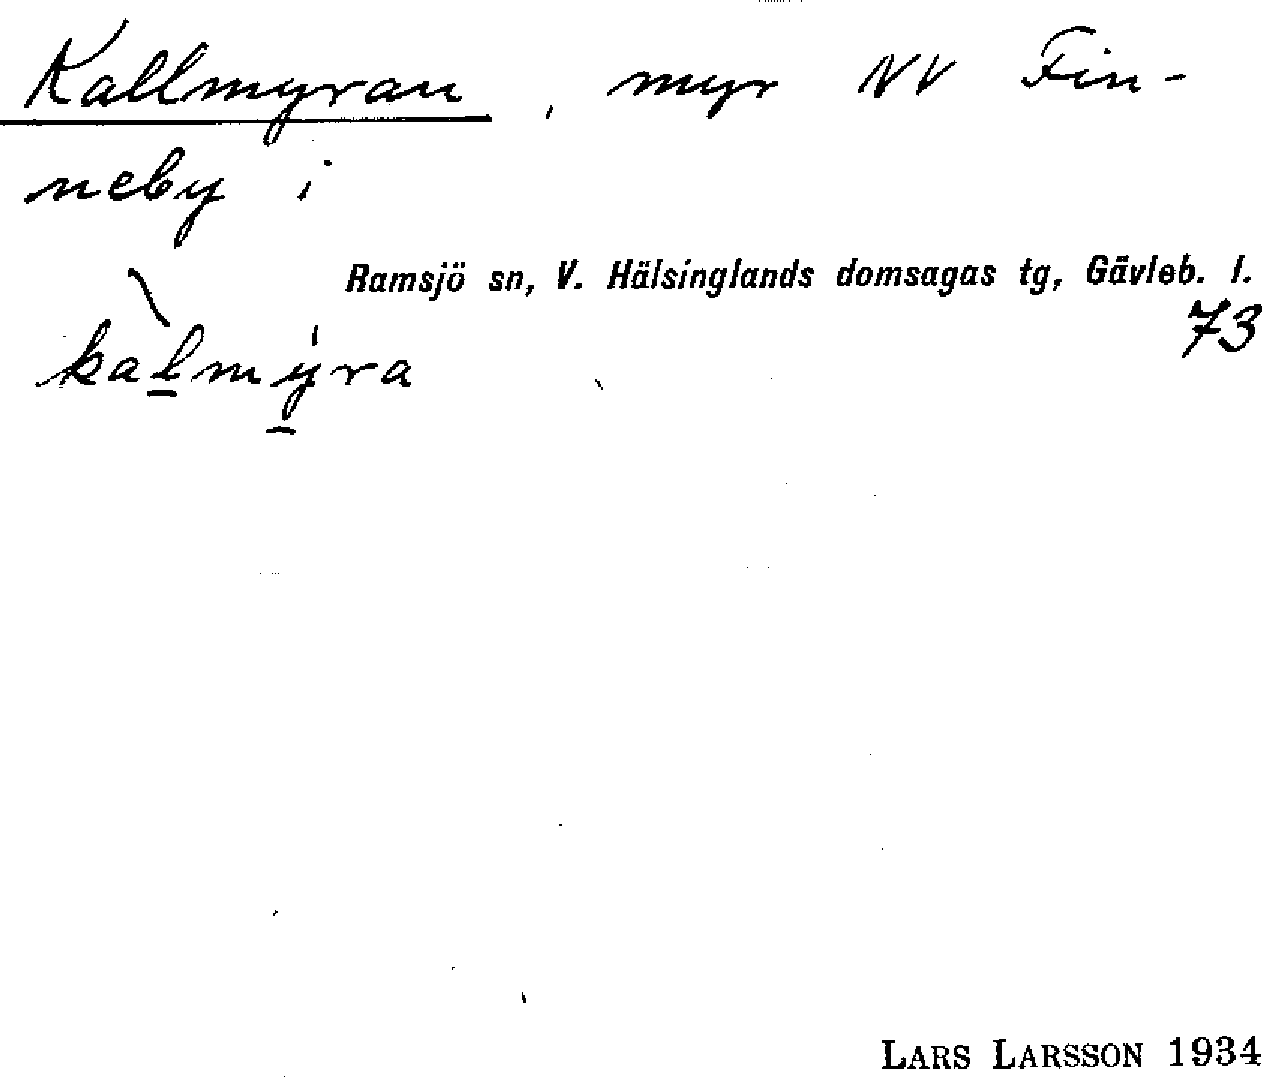 Kallmyran, myr NV Fin-
neby i
Ramsjö sn, V. Hälsinglands domsagas tg, Gävleb. l.
73
kàl̲mý̲ra
LARS LARSSON 1934